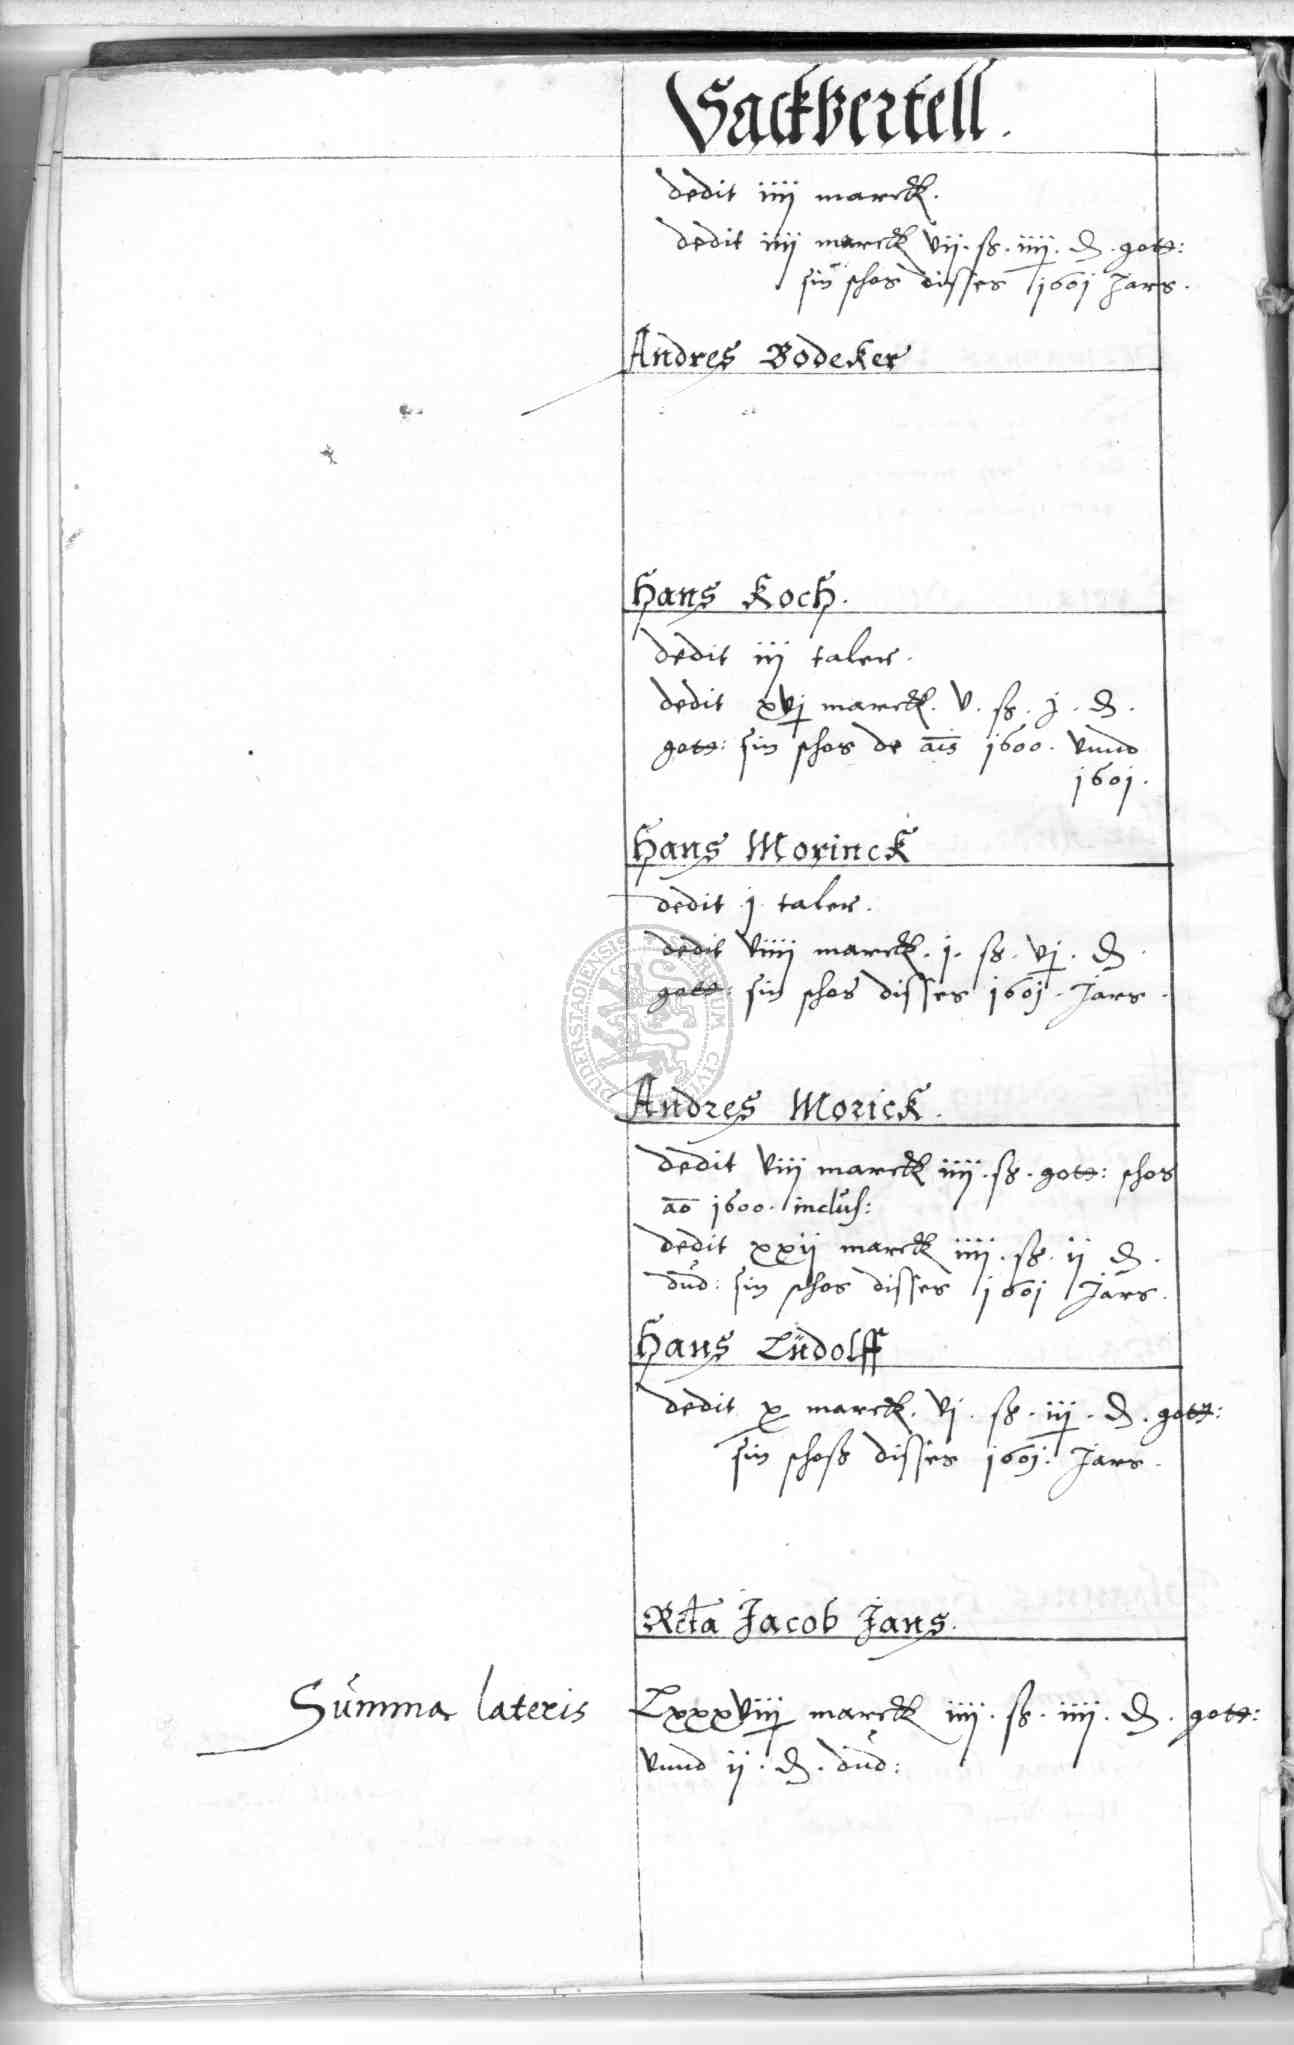 Sackvertell.
dedit iiij marck.
dedit iiij marck vij. ß. iiij. ₰. gott:
sin schos disses 1601 Jars.
Andres Bodeker
Hans Koch.
dedit iij taler.
dedit xvj marck. v. ß. j. ₰.
gott: sin schos de ais 1600. vnnd
1601.
Hans Morinck
dedit j taler.
dedit viiij marck. j. ß. vj. ₰.
gott: sin schos disses 1601. Jars.
Andres Morick.
dedit viij marck iiij. ß. gott: schos
ao 1600. inclus:
dedit xxij marck iiij. ß. ij ₰.
dud: sin schos disses 1601 Jars.
Hans Ludolff
dedit x marck. vj. ß. iij. ₰. gott:
sin schoß disses 1601. Jars.
Rcta Jacob Jans.
Summa lateris Lxxxviij marck iiij. ß. iiij. ₰. gott:
vnnd ij. ₰. dud: